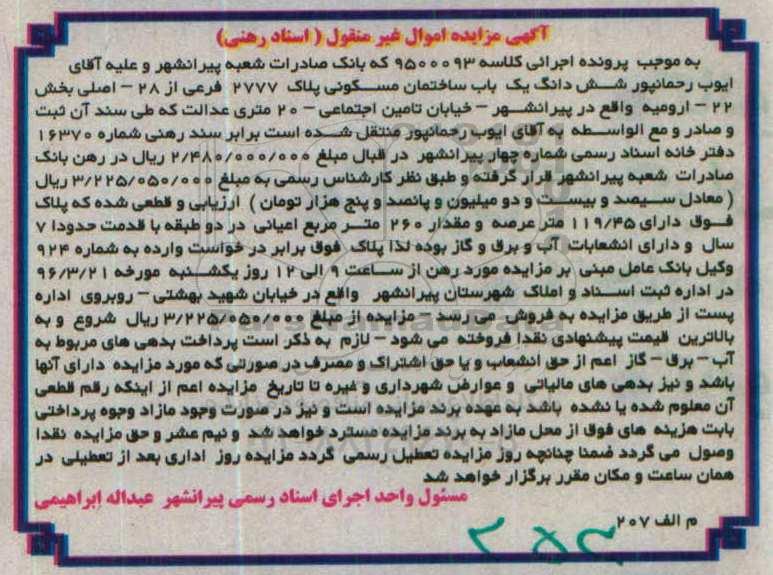 آگهی مزایده اموال غیر منقول ( اسناد رهنی)
به موجب پرونده اجرائی کلاسه ۹۵۰۰۰۹۳ که بانک صادرات شعبه پیرانشهر و علیه آقای
ایوب رحمانپور شش دانگ یک باب ساختمان مسکونی پلاک ۲۷۷۷ فرعی از ۲۸ – اصلی بخش
۲۲ – ارومیه واقع در پیرانشهر – خیابان تامین اجتماعی – ۲۰ متری عدالت که طی سند آن ثبت
و صادر و مع الواسطه به آقای ایوب رحمانپور منتقل شده است برابر سند رهنی شماره ۱۶۳۷۰
دفتر خانه اسناد رسمی شماره چهار پیرانشهر در قبال مبلغ ۲/۴۸۰/۰۰۰/۰۰۰ ریال در رهن بانک
صادرات شعبه پیرانشهر قرار گرفته و طبق نظر کارشناس رسمی به مبلغ ۳/۲۲۵/۰۵۰/۰۰۰ ریال
( معادل سیصد و بیست و دو میلیون و پانصد و پنج هزار تومان ) ارزیابی و قطعی شده که پلاک
فوق دارای ۱۱۹/۴۵ متر عرصه و مقدار ۲۶۰ متر مربع اعیانی در دو طبقه با قدمت حدودا ۷
سال و دارای انشعابات آب و برق و گاز بوده لذا پلاک فوق برابر در خواست وارده به شماره ۹۲۴
وکیل بانک عامل مبنی بر مزایده مورد رهن از ساعت ۹ الی ۱۲ روز یکشنبه مورخه ۹۶/۳/۲۱
در اداره ثبت اسناد و املاک شهرستان پیرانشهر واقع در خیابان شهید بهشتی – روبروی اداره
پست از طریق مزایده به فروش می رسد – مزایده از مبلغ ۳/۲۲۵/۰۵۰/۰۰۰ ریال شروع و به
بالاترین قیمت پیشنهادی نقدا فروخته می شود – لازم به ذکر است پرداخت بدهی های مربوط به
آب – برق – گاز اعم از حق انشعاب و یا حق اشتراک و مصرف در صورتی که مورد مزایده دارای آنها
باشد و نیز بدهی های مالیاتی و عوارض شهرداری و غیره تا تاریخ مزایده اعم از اینکه رقم قطعی
آن معلوم شده یا نشده باشد به عهده برنده مزایده است و نیز در صورت وجود مازاد وجوه پرداختی
بابت هزینه های فوق از محل مازاد به برنده مزایده مسترد خواهد شد و نیم عشر و حق مزایده نقدا
وصول می گردد ضمنا چنانچه روز مزایده تعطیل رسمی گردد مزایده روز اداری بعد از تعطیلی در
همان ساعت و مکان مقرر برگزار خواهد شد
مسئول واحد اجرای اسناد رسمی پیرانشهر عبداله ابراهیمی
م الف ۲۰۷